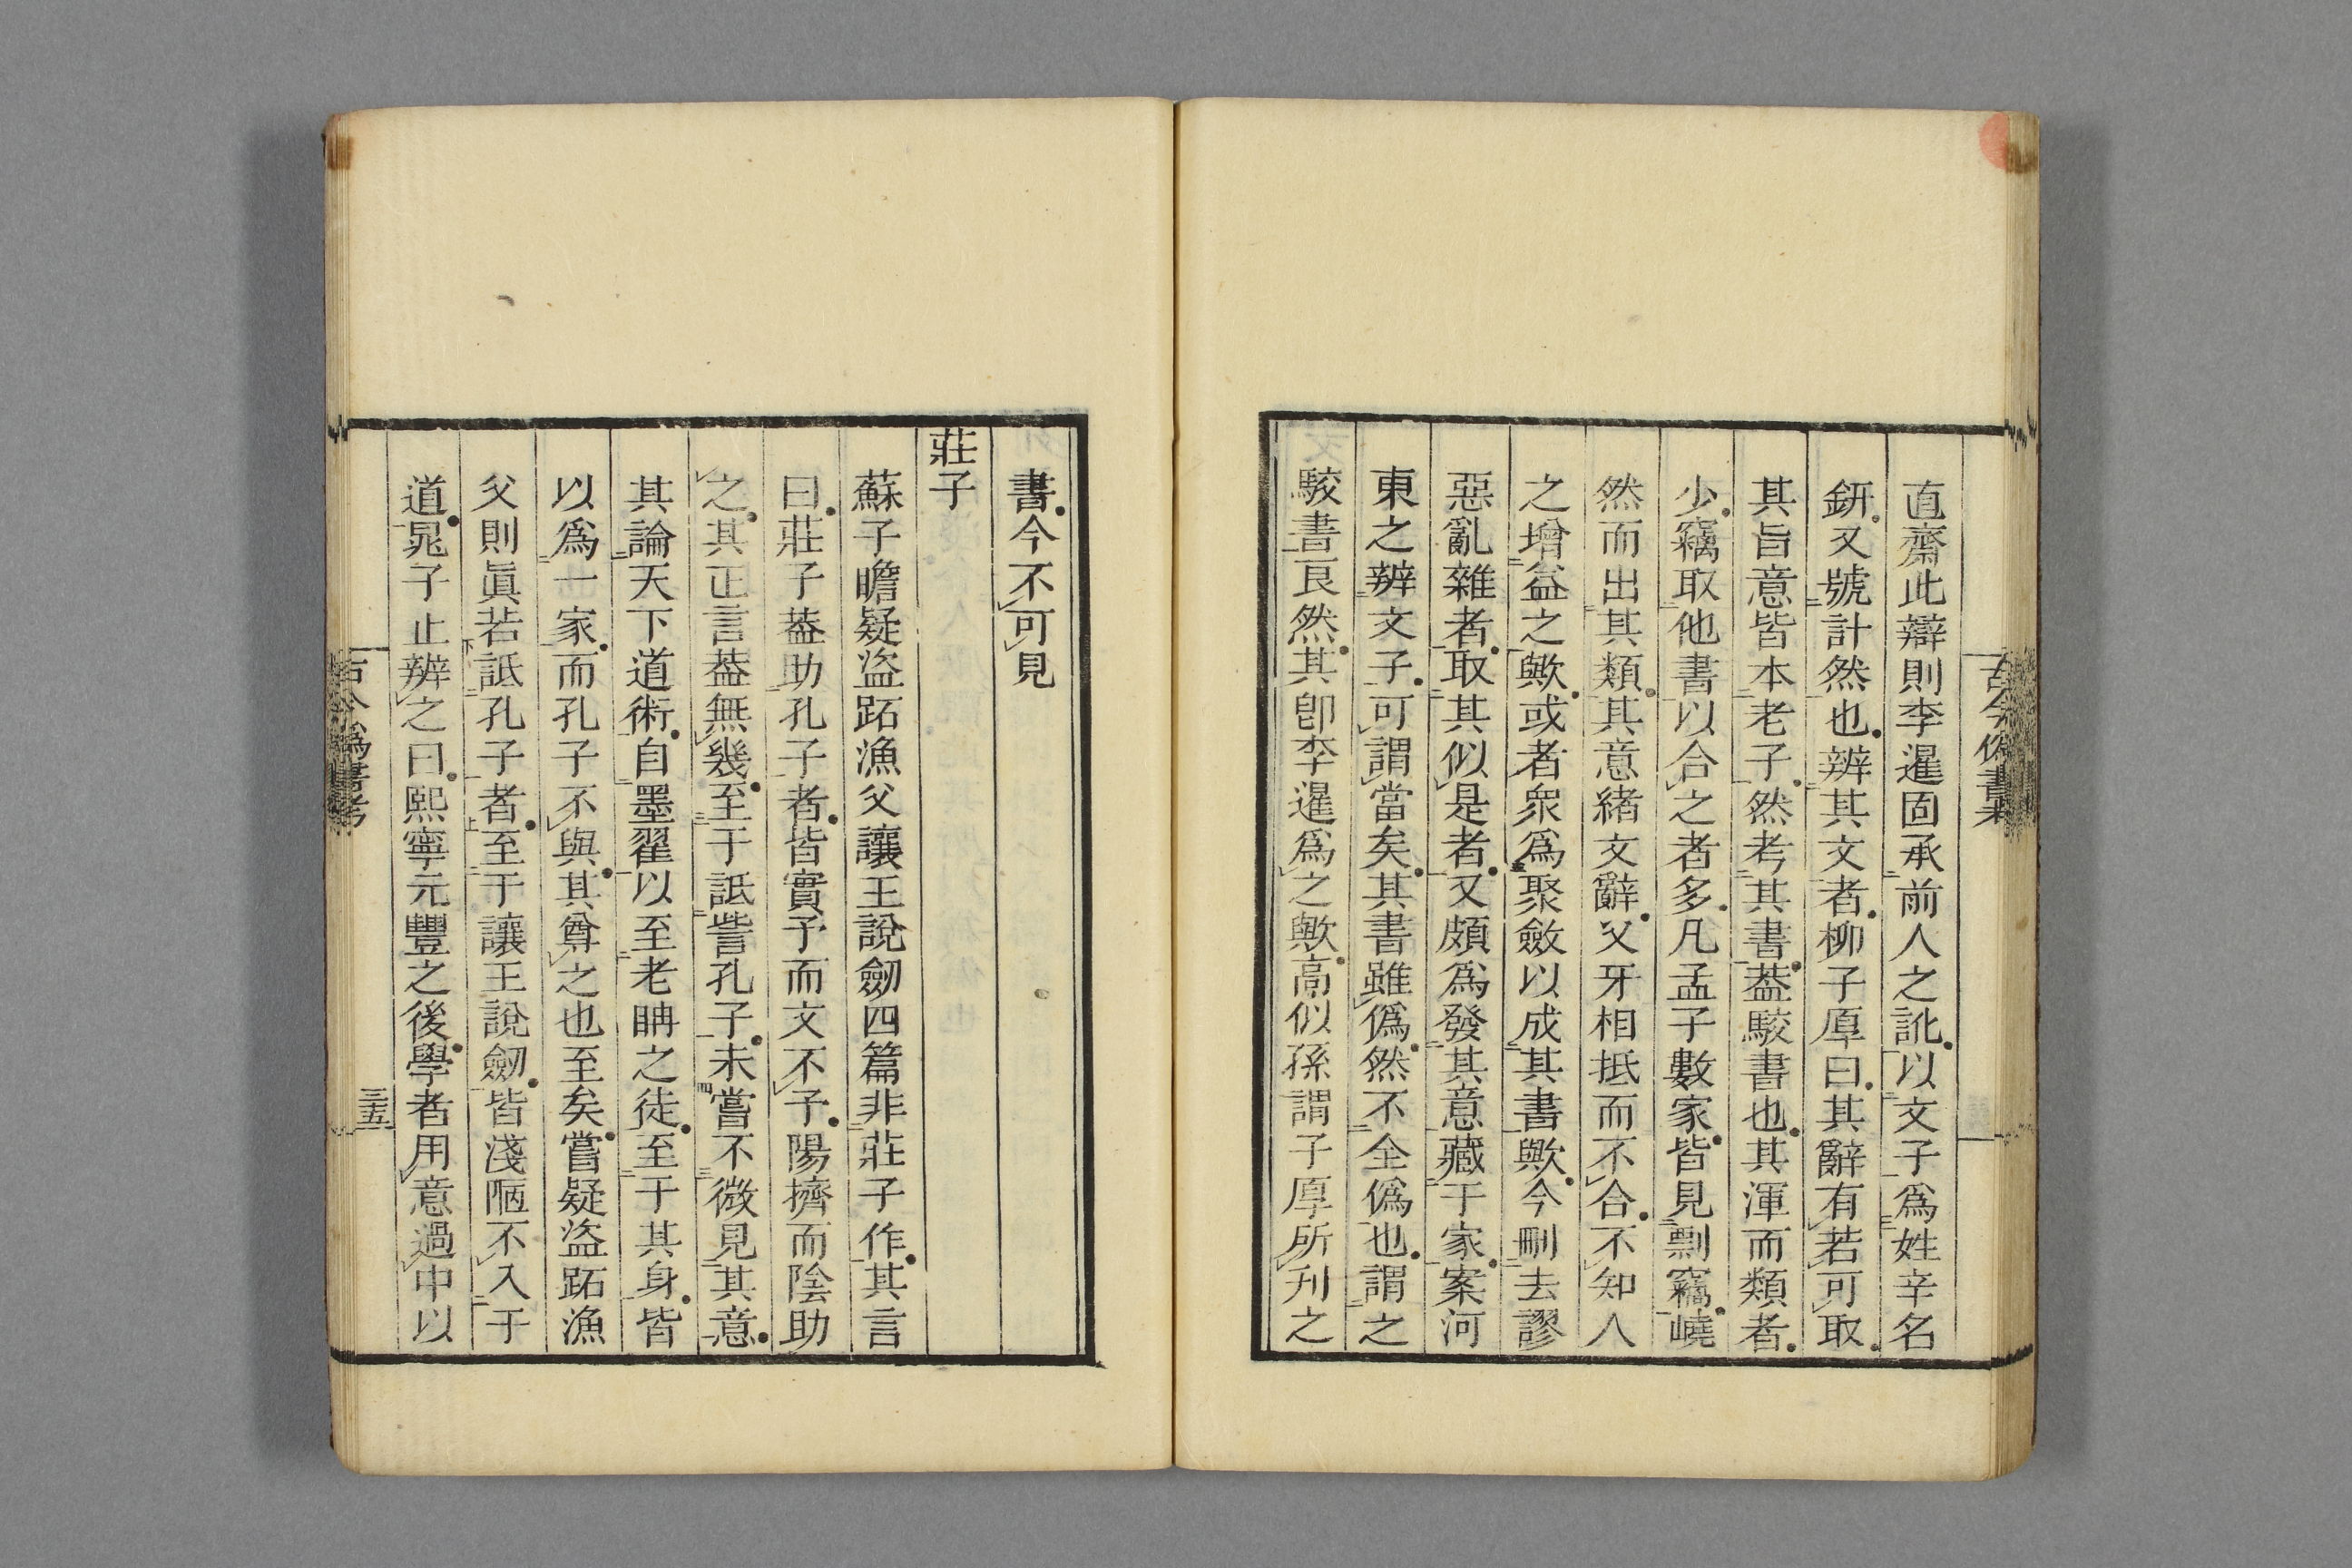 直齋此辯則李暹固承前人之訛以文子爲姓辛名
鈃又號計然也辨其文者柳子厚曰其辭有若可取
其旨意皆本老子然考其書葢駁書也其渾而類者
少竊取他書以合之者多凡孟子數家皆見剽竊嶢
然而出其類其意緒文辭父牙相抵而不合不知人
之增益之歟或者衆爲聚斂以成其書歟今刪去謬
惡亂雜者取其似是者又頗爲發其意藏于家案河
東之辨文子可謂當矣其書雖僞然不全僞也謂之
駁書良然其卽李暹爲之歟高似孫謂子厚所刋之
書今不可見
莊子
蘇子瞻疑盜跖漁父讓王說劒四篇非莊子作其言
曰莊子葢助孔子者皆實予而文不予陽擠而陰助
之其正言葢無幾至于詆訾孔子未嘗不微見其意
其論天下道術自墨翟以至老聃之徒至于其身皆
以爲一家而孔子不與其尊之也至矣嘗疑盜跖漁
父則眞若詆孔子者至于讓王說劒皆淺陋不入于
道晁子止辨之曰熙寧元豐之後學者用意過中以
古今僞書考
三十五